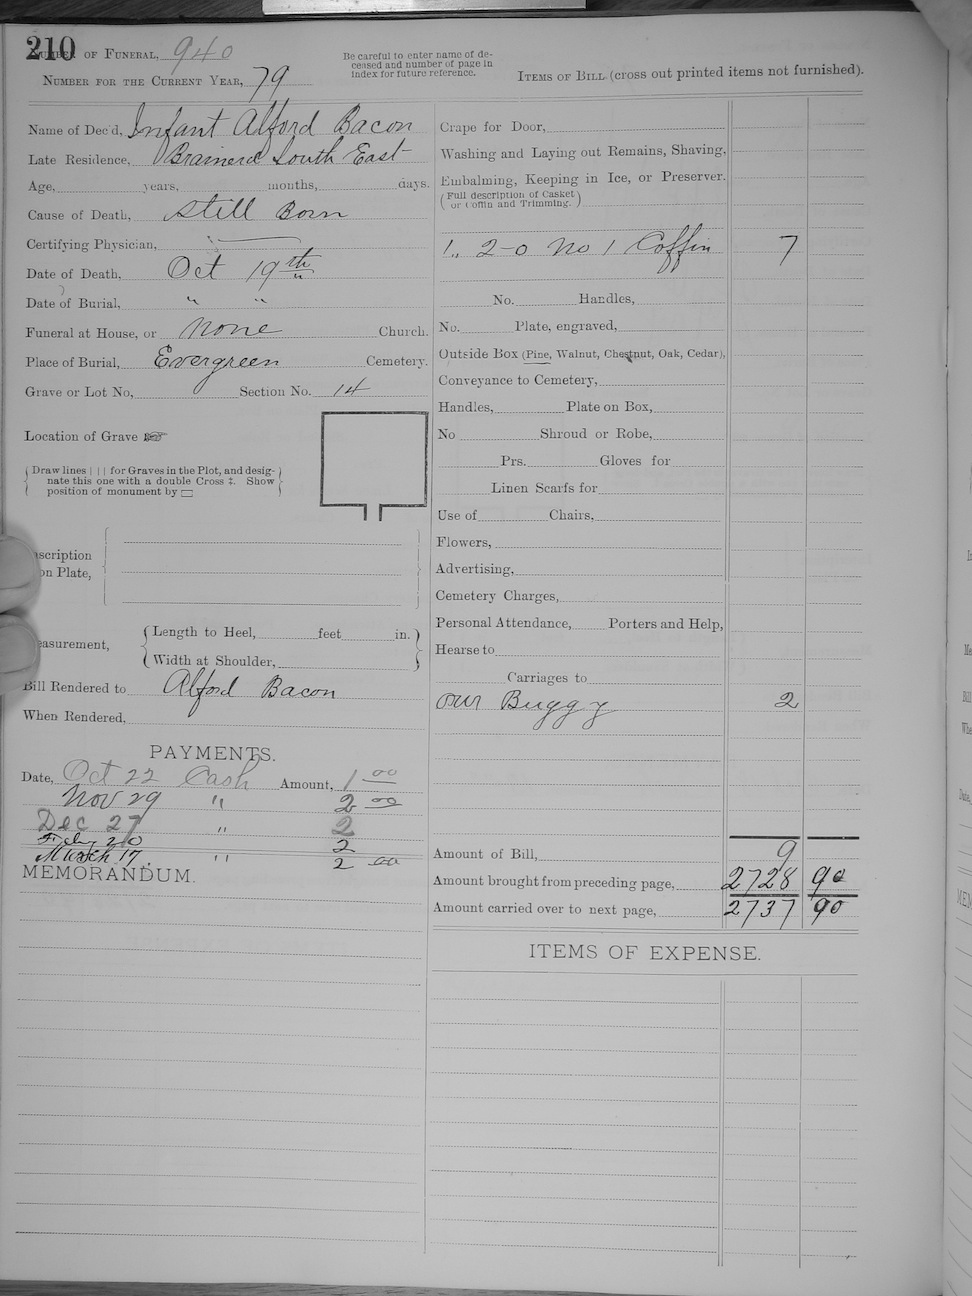 210
NUMBER OF FUNERAL, 940
NUMBER FOR THE CURRENT YEAR, 79
Be careful to enter name of de-
ceased and number of page in
index for future reference.
ITEMS OF BILL (cross out printed items not furnished).
Name of Dec'd, Infant Alford Bacon
Late Residence, Brainerd South East
Age, years, months, days.
Cause of Death, Still Born
Certifying Physician,
Date of Death, Oct 19th
Date of Burial, " "
Funeral at House, or None Church.
Place of Burial, Evergreen Cemetery.
Grave or Lot No, Section No. 14
Location of Grave ☞
Draw lines | | | for Graves in the Plot, and desig-
nate this one with a double Cross ‡. Show
position of monument by ▭
scription
on Plate,
easurement,
Length to Heel, feet in.
Width at Shoulder,
Bill Rendered to Alford Bacon
When Rendered,
PAYMENTS.
Date, Oct 22 Cash Amount, 1 00
Nov 29 " 2 00
Dec 27 " 2
Feby 20 2
March 17, " 2 00
MEMORANDUM.
Crape for Door,
Washing and Laying out Remains, Shaving,
Embalming, Keeping in Ice, or Preserver.
(Full description of Casket
or Coffin and Trimming.)
1,, 2-0 No 1 Coffin 7
No. Handles,
No. Plate, engraved,
Outside Box (Pine, Walnut, Chestnut, Oak, Cedar),
Conveyance to Cemetery,
Handles, Plate on Box,
No Shroud or Robe,
Prs. Gloves for
Linen Scarfs for
Use of Chairs,
Flowers,
Advertising,
Cemetery Charges,
Personal Attendance, Porters and Help,
Hearse to
Carriages to
our Buggy 2
Amount of Bill, 9
Amount brought from preceding page, 2728 90
Amount carried over to next page, 2737 90
ITEMS OF EXPENSE.